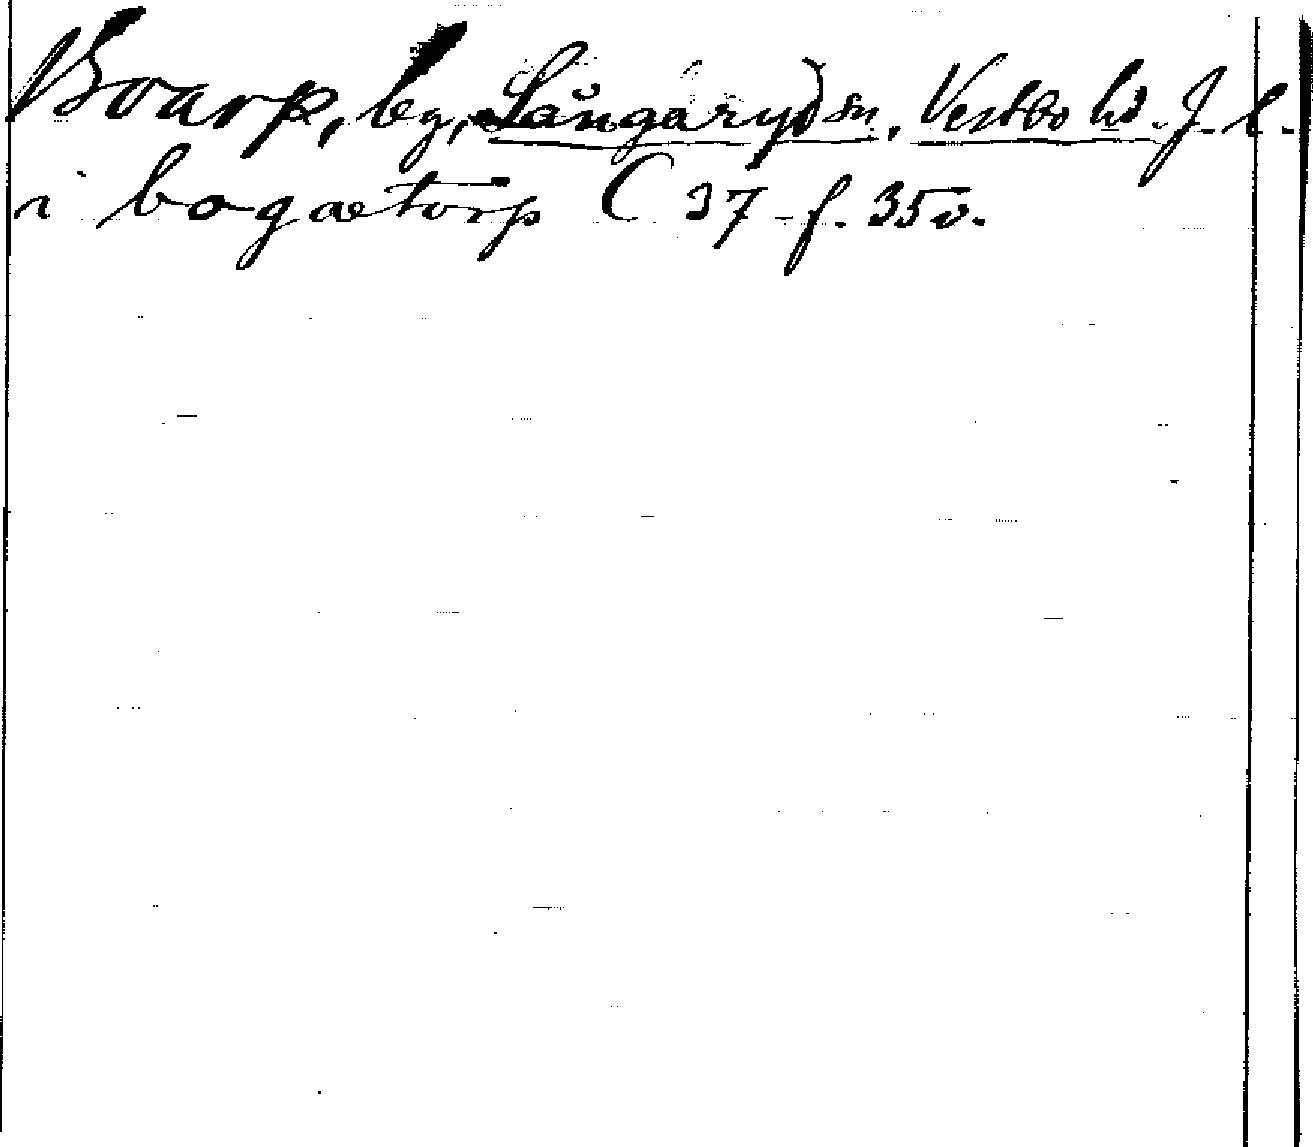 Boarp, by, Långaryd sn, Vestbo hd. J. l.
i bogætorp C 37 f. 35 v.